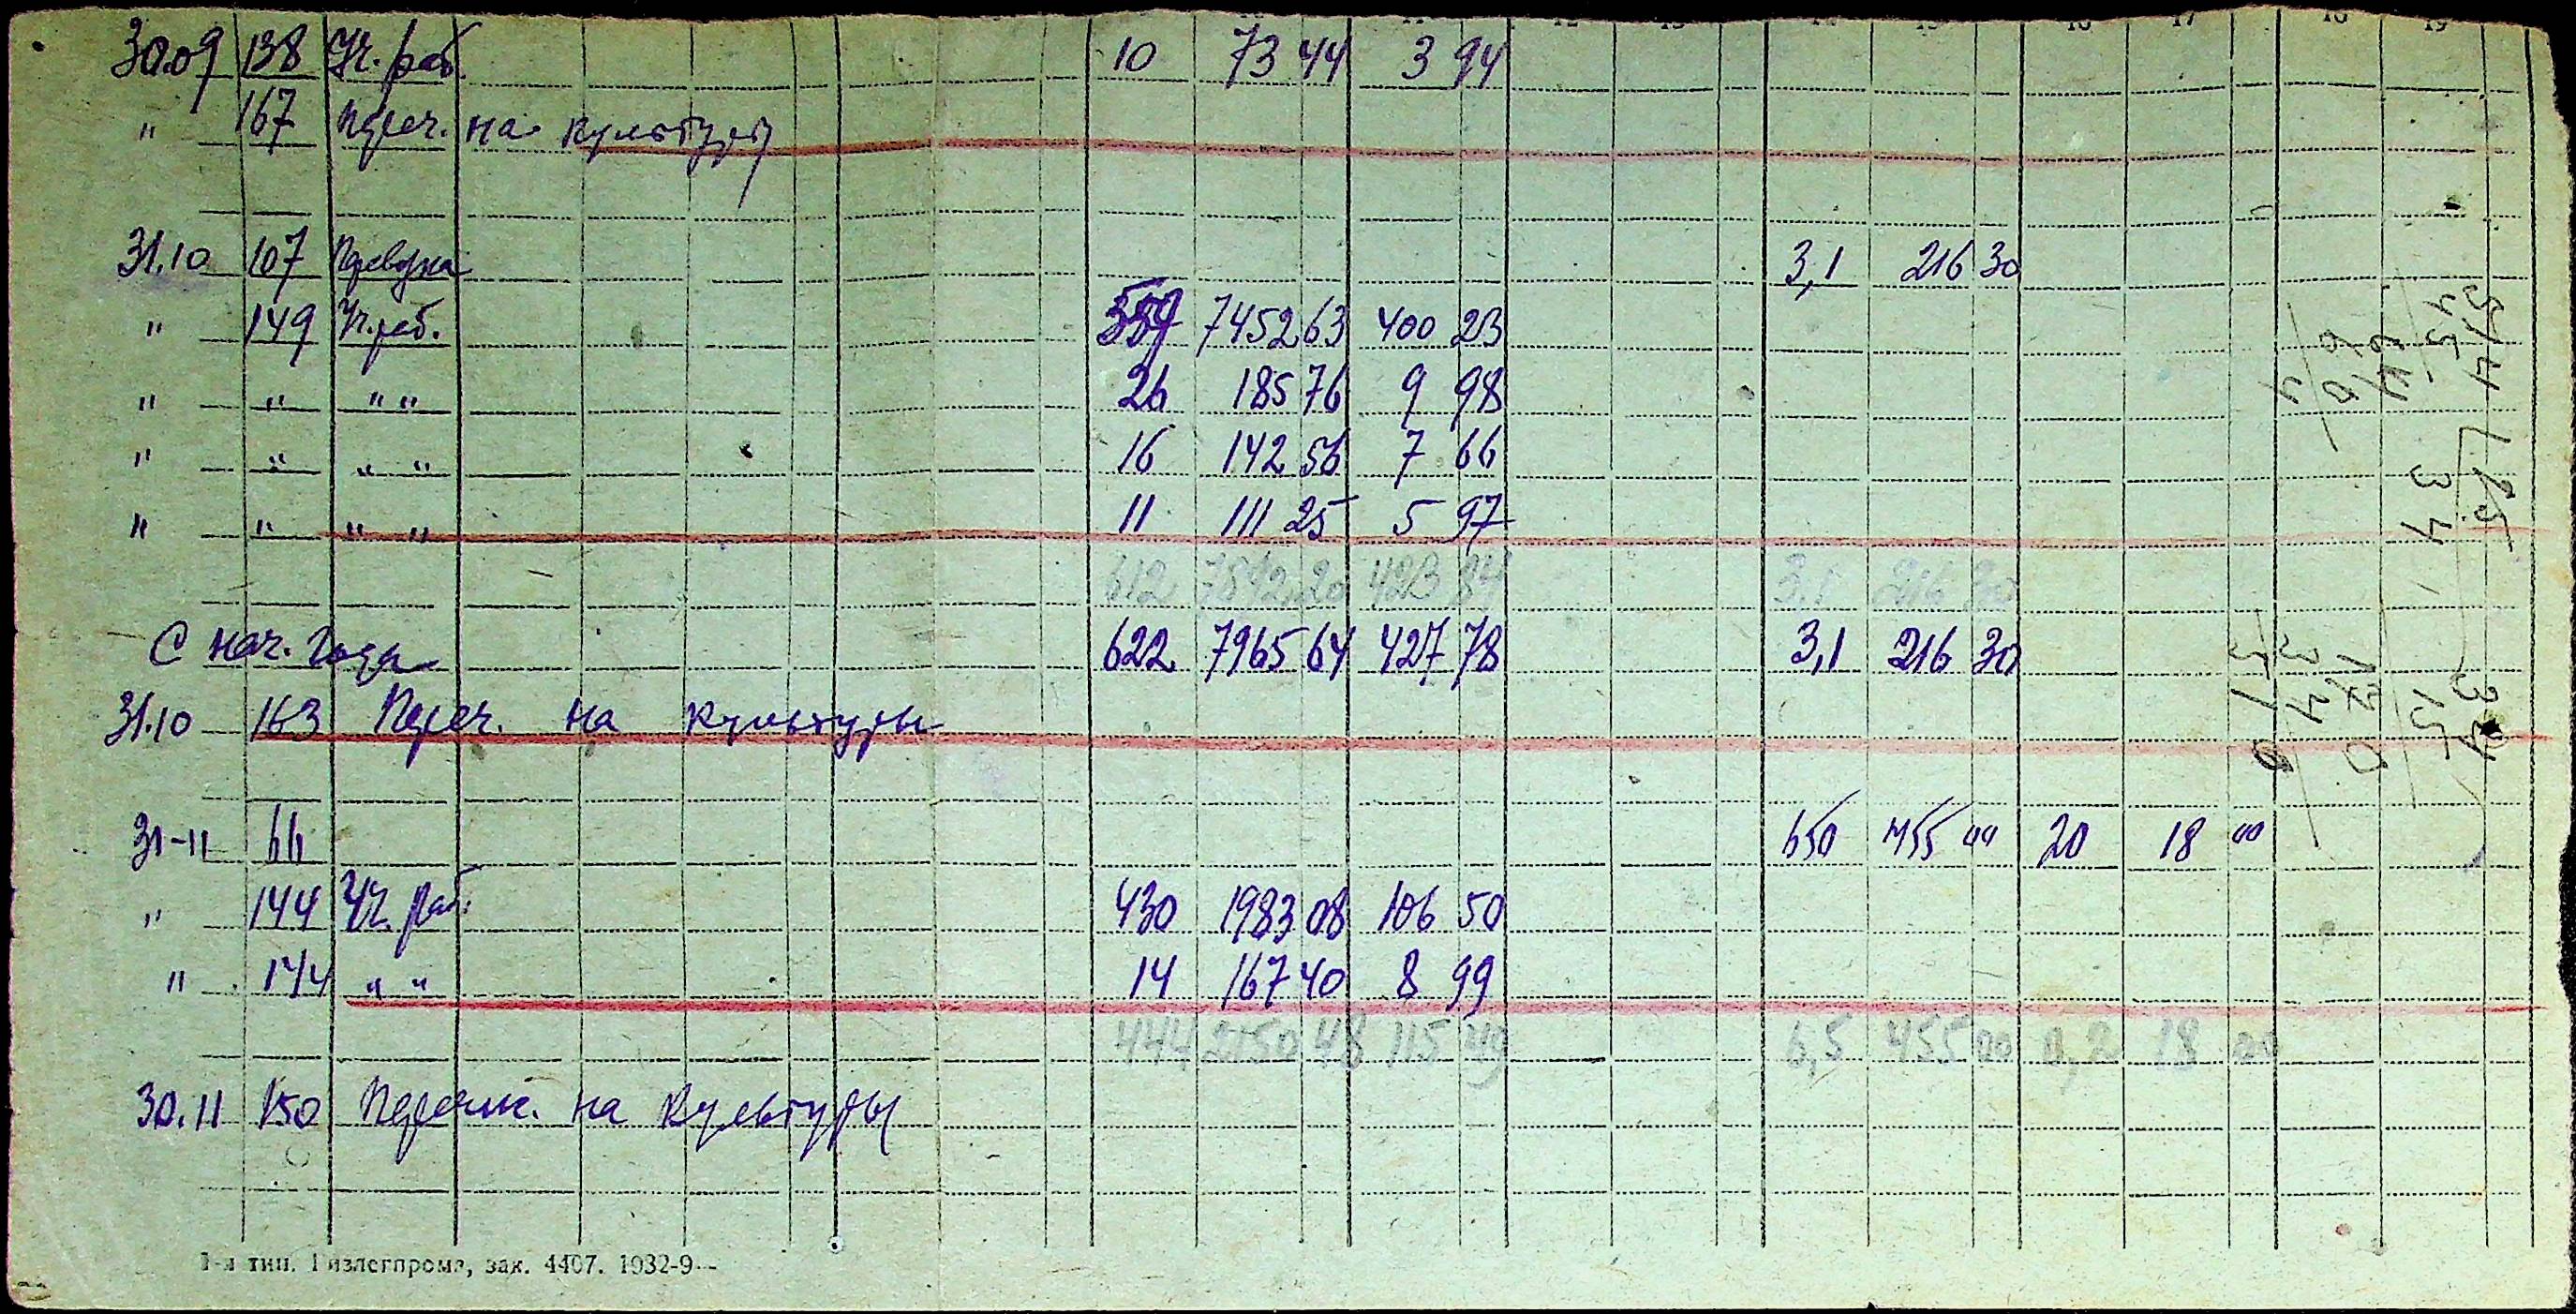 30.09 138 Уч. раб. 10 73 44 3 94
" 167 Переч. на культуры
31.10 107 Перевозка 3,1 216 30
" 149 Уч. раб. 559 7452 63 400 23
" " " " 26 185 76 9 98
" " " " 16 142 56 7 66
" " " " 11 111 25 5 97
612 7892 20 423 84 3,1 216 30
С нач. года 622 7965 64 427 78 3,1 216 30
31.10 163 Переч. на культуры
31-11 66 650 455 00 20 18 00
" 144 Уч. раб. 430 1983 08 106 50
" 144 " " 14 167 40 8 99
444 2150 48 115 49 6,5 455 00 0,2 18 00
30.11 150 Перечис. на культуры
тип. Гизлегпрома, зак. 4407. 1932-9